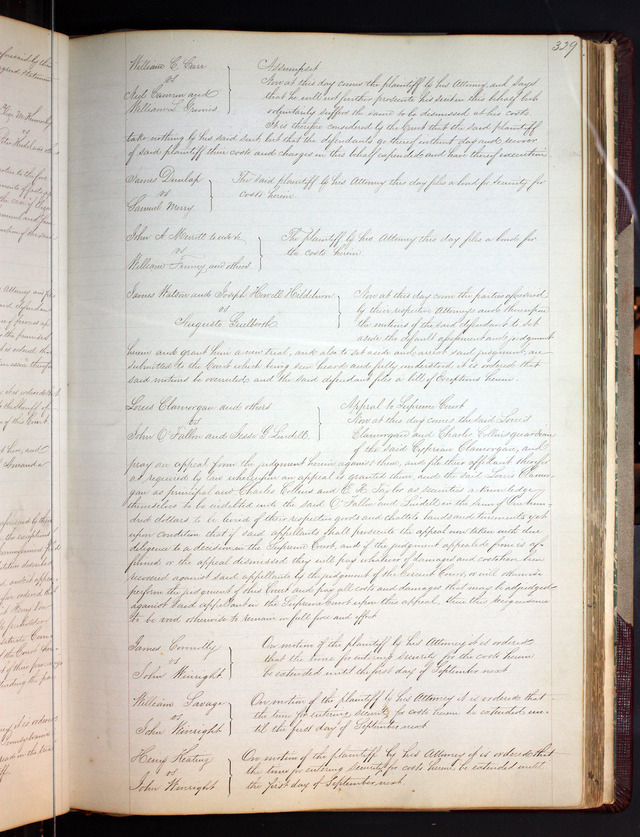 329
William C. Carr
vs
Neil Cameron and
William L. Grimes
Assumpsit
Now at this day comes the plaintiff by his Attorney and says
that he will not further prosecute his suit in this behalf but
voluntarily suffers the same to be dismissed at his costs
It is therefore considered by the Court that the said plaintiff
take nothing by his said suit but that the defendants go thereof without day and recover
of said plaintiff their costs and charges in this behalf expended and have thereof execution
James Dunlap
vs
Samuel Merry
The said plaintiff by his Attorney this day files a bond for security for
costs herein
John A. Merritt to use &c
vs
William Finney and others
The plaintiff by his Attorney this day files a bond for
the costs herein
James Watson and Joseph Howell
vs
Auguste Guelbreth
Now at this day come the parties aforesaid
by their respective Attorneys and thereupon
the motions of the said defendant to set
aside the default assessment and judgment
herein and grant him a new trial, and also to set aside and arrest said judgment, are
submitted to the Court which being seen heard and fully understood it is ordered that
said motions be overruled and the said defendant files a bill of exceptions herein.
Louis Clamorgan and others
vs
John O'Fallon and Jesse G. Lindell
Appeal to Supreme Court
Now at this day comes the said Louis
Clamorgan and Charles Collins guardian
of the said Cyprian Clamorgan, and
pray an appeal from the judgment herein against them, and file their affidavit therefor
as required by law whereupon an appeal is granted them and the said Louis Clamor-
gan as principal and Charles Collins and E. H. Taylor as securities acknowledge
themselves to be indebted unto the said O'Fallon and Lindell in the sum of One hun-
dred dollars to be levied of their respective goods and chattels lands and tenements yet
upon condition that if said appellants shall prosecute the appeal now taken with due
diligence to a decision in the Supreme Court, and if the judgment appealed from be af-
firmed or the appeal dismissed they will pay whatever damages and costs have been
recovered against said appellants by the judgment of the Circuit Court, or will otherwise
perform the judgment of this Court and pay all costs and damages that may be adjudged
against said appellants in the Supreme Court upon this appeal then this recognizance
to be void otherwise to remain in full force and effect
James Connelly
vs
John Winright
On motion of the plaintiff by his Attorney it is ordered
that the time for entering security for the costs herein
be extended until the first day of September next
William Savage
vs
John Winright
On motion of the plaintiff by his Attorney it is ordered that
the time for entering security for costs herein be extended un-
til the first day of September next
Henry Keating
vs
John Winright
On motion of the plaintiff by his Attorney it is ordered that
the time for entering security for costs herein be extended until
the first day of September next